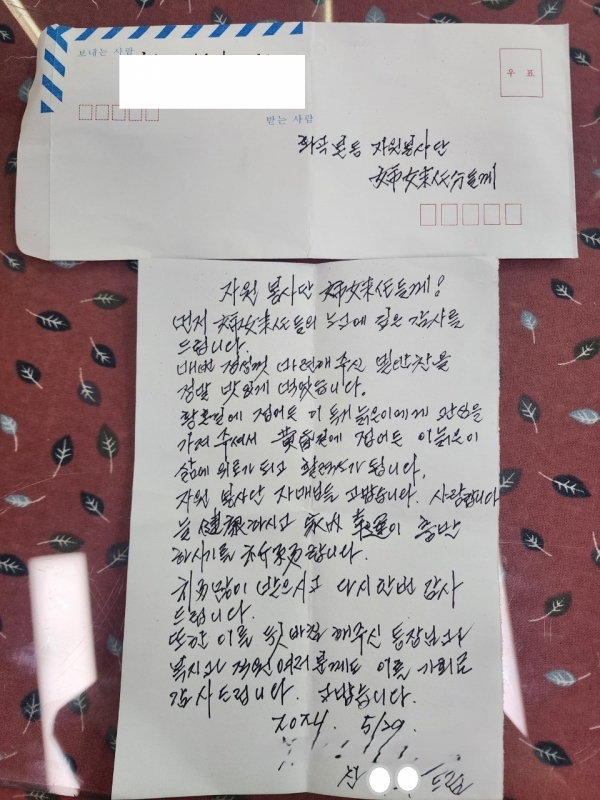 보내는 사람
우 표
받는 사람
화곡본동 자원봉사단
姉妹任分들께
자원 봉사단 姉妹任들께!
먼저 姉妹任들의 노고에 깊은 감사를
드립니다.
매번 정성껏 마련해 주신 밑반찬을
정말 맛있게 먹었습니다.
황혼길에 접어든 이 독거 늙은이에게 관심을
가져 주셔서 黃昏길에 접어든 이 늙은이
삶에 위로가 되고 활력소가 됩니다.
자원 봉사단 자매님들 고맙습니다. 사랑합니다
늘 健康하시고 家內 幸運이 충만
하시기를 합니다.
지원 많이 받으시고 다시 한번 감사
드립니다.
또한 이를 뒷받침 해주신 동장님과
복지과 직원 여러분께도 이를 기회로
감사드립니다. 고맙습니다.
2024. 5/29.
드림